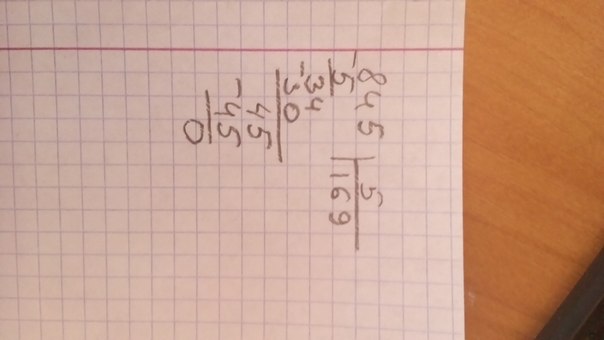 845 | 5
-5 | 169
34
-30
45
-45
0